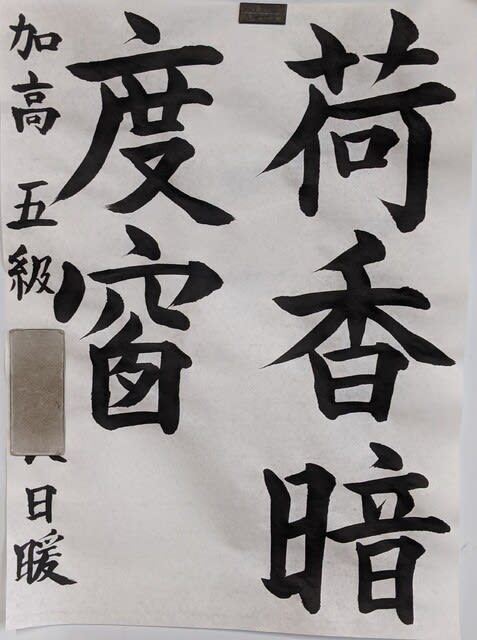 荷香暗
度窗
加高 五級 日暖